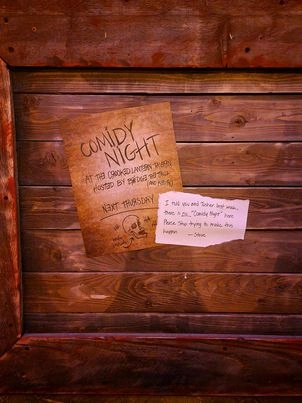 COMIDY
NIGHT
AT THE CROOKED LANTERN TAVERN
HOSTED BY BRIDGER THE TALL
(AND TUCKER)
NEXT THURSDAY
HA
HA
I told you and Tucker last week,
there is no "Comidy Night" here.
Please stop trying to make this
happen.
— Steve